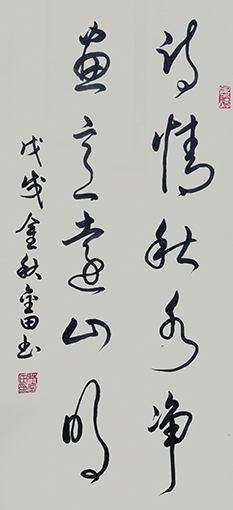 诗情秋水净
画意远山明
戊戌金秋奎田书